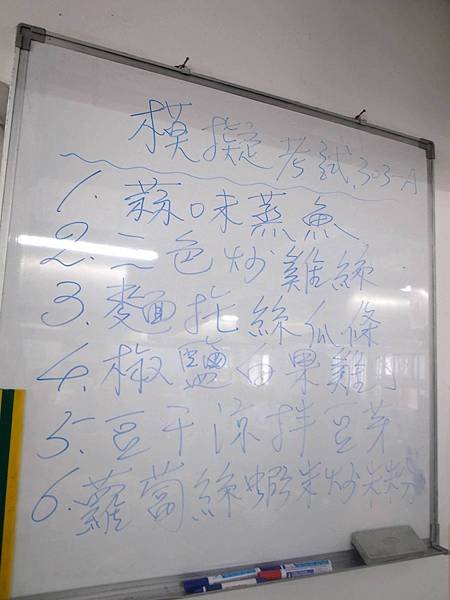 模擬考試.303-A
1. 蒜味蒸魚
2. 三色炒雞絲
3. 麵托絲瓜條
4. 椒鹽白果雞丁
5. 豆干涼拌豆芽
6. 蘿蔔絲蝦米炒米粉